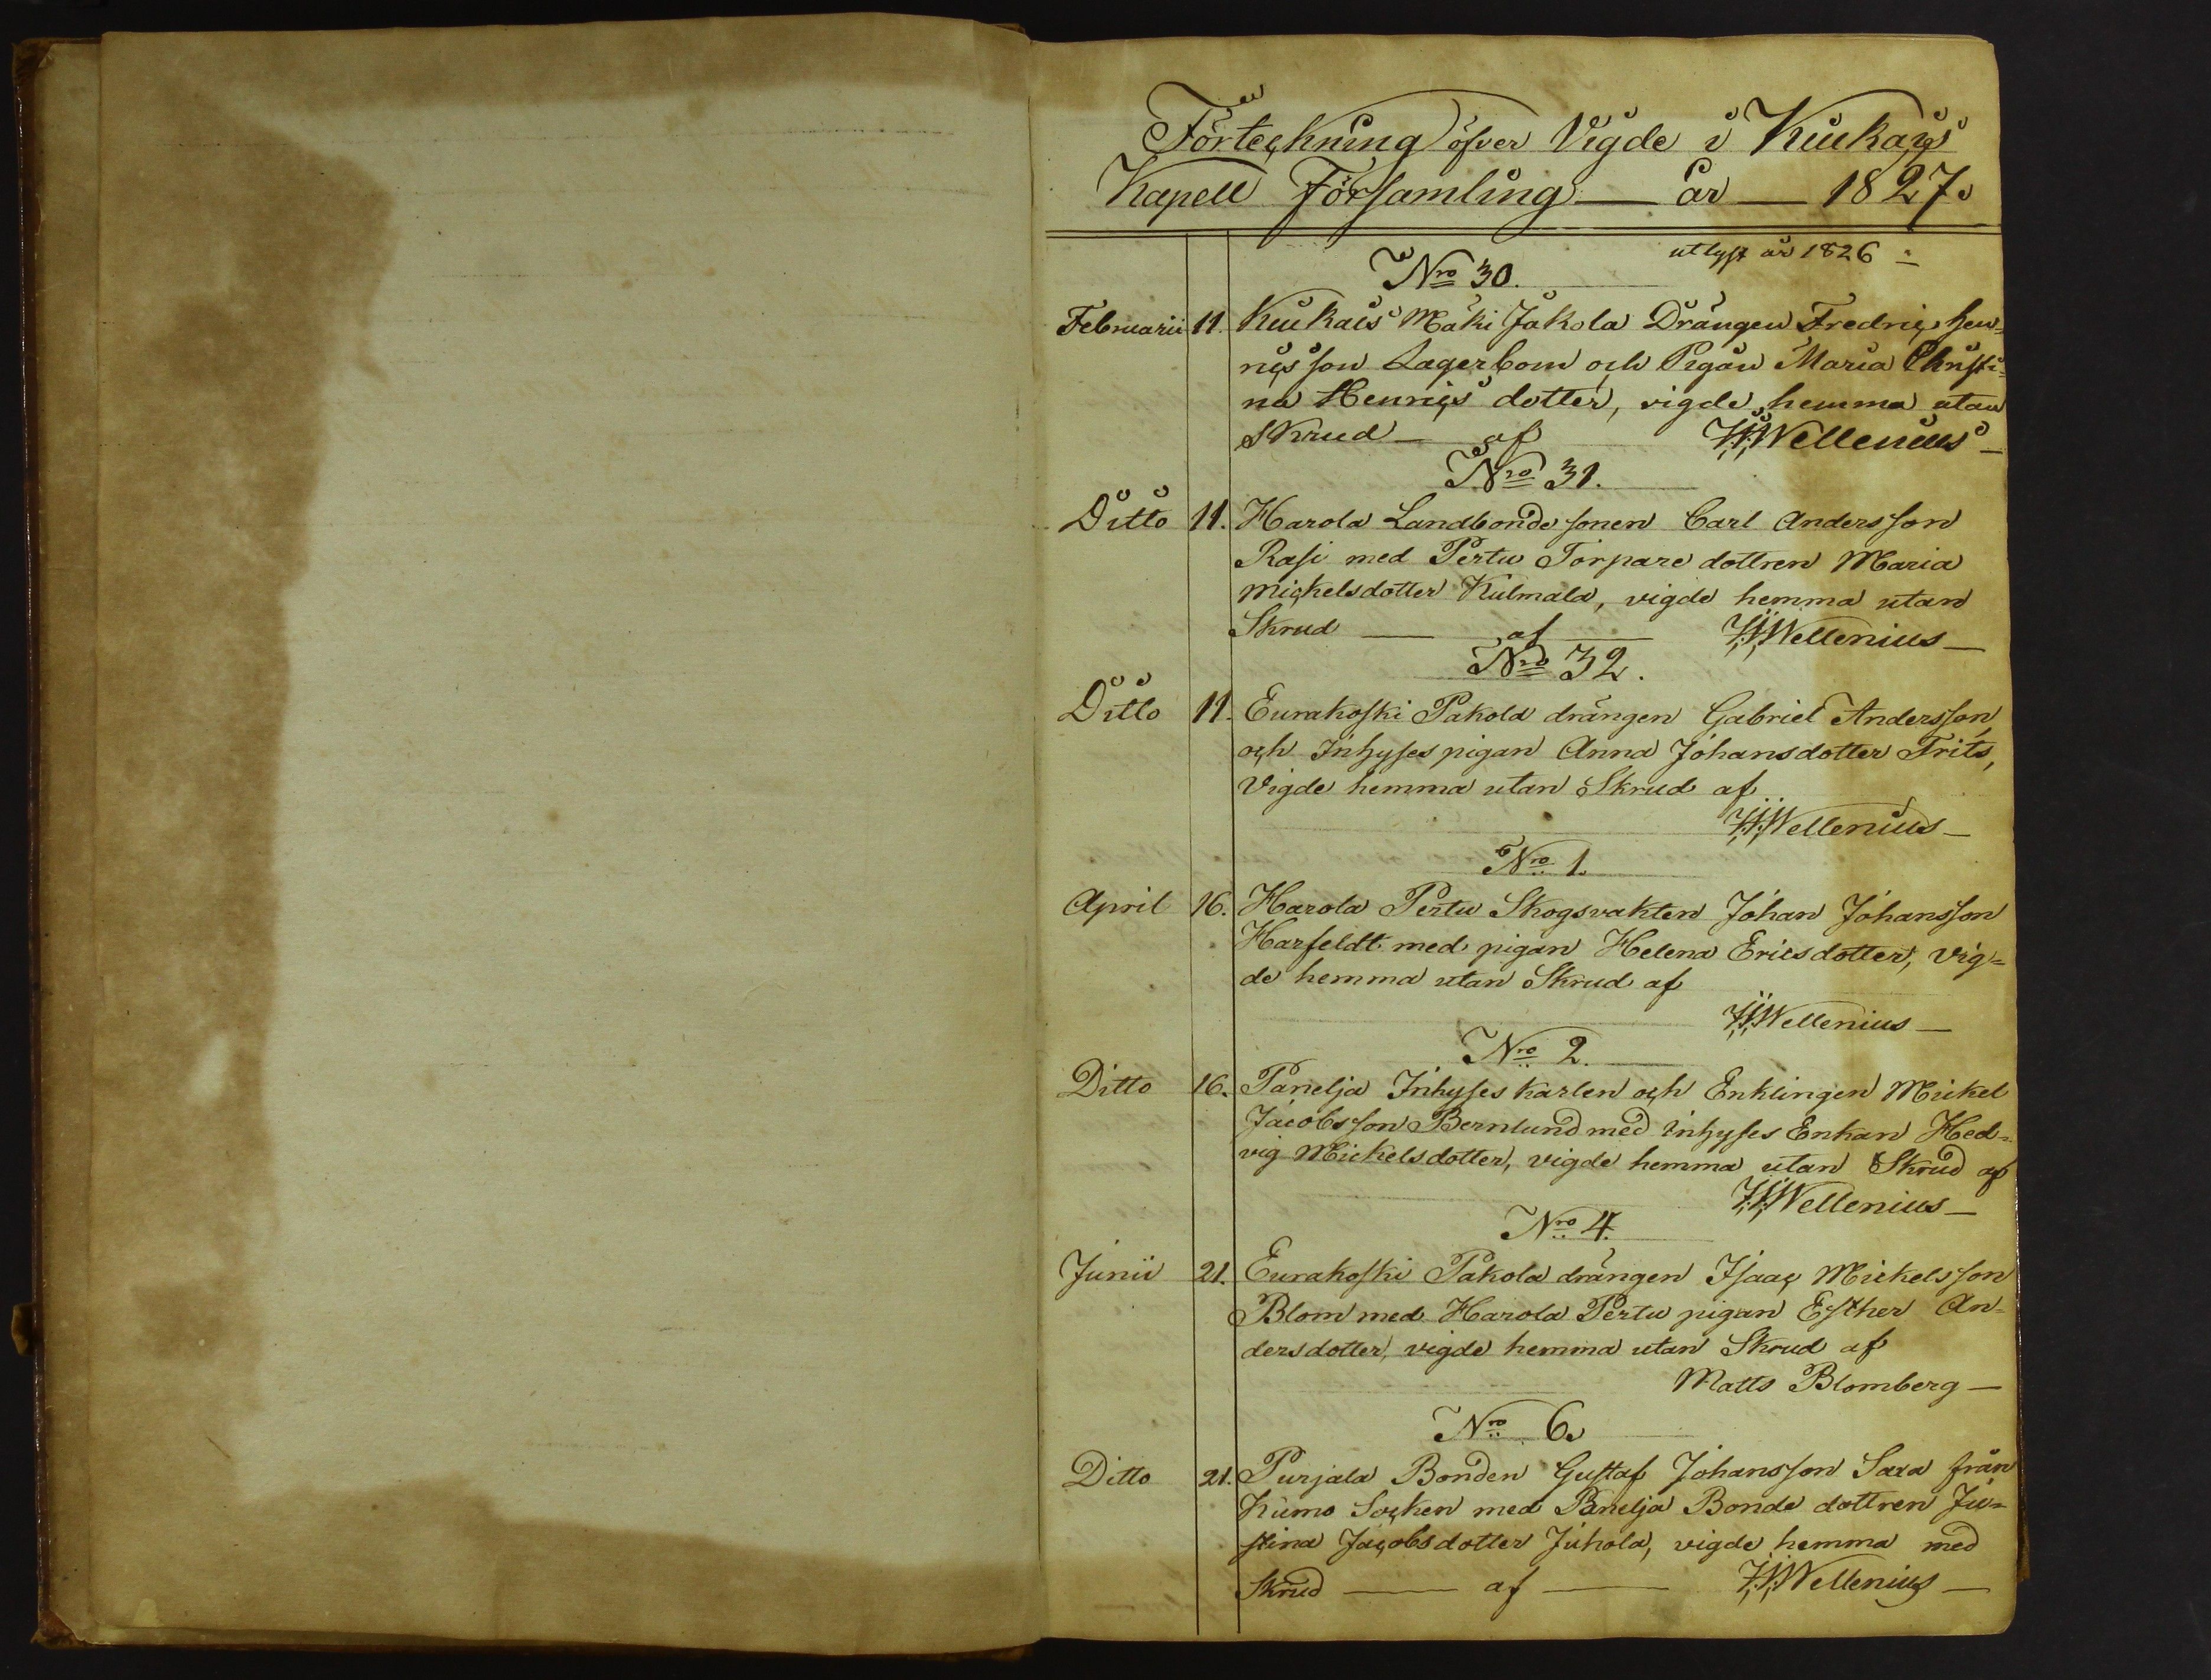 Förteckning öfver Vigde i Kiukais
Kapell Församling — år — 1827.
utlyst år 1826
Nro 30.
Februarii 11. Kiukais Mäki Jakola Drängen Fredric Hen=
ricsson Lagerbom och Pigan Maria Christi=
na Henrics dotter, vigde hemma utan
skrud — af Wellenius —
Nro 31.
Ditto 11. Harola Landbonde sonen Carl Andersson
Rasi med Pertu Torpare dottren Maria
Mickelsdotter Kulmala, vigde hemma utan
Skrud — af — Wellenius —
Nro 32.
Ditto 11. Eurakoski Pakola drängen Gabriel Andersson
och Inhyses pigan Anna Johansdotter Frits,
Vigde hemma utan Skrud af
Wellenius —
Nro 1.
April 16. Harola Pertu Skogsvakten Johan Johansson
Harfeldt med pigan Helena Ericsdotter, vig=
de hemma utan Skrud af
Wellenius —
Nro 2.
Ditto 16. Panelja Inhyses karlen och Enklingen Mickel
Jacobsson Bernlund med inhyses Enkan Hed=
vig Mickelsdotter, vigde hemma utan Skrud af
Wellenius —
Nro 4.
Junii 21. Eurakoski Pakola drängen Isaac Mickelsson
Blom med Harola Pertu pigan Esther An=
dersdotter, vigde hemma utan Skrud af
Matts Blomberg —
Nro 6.
Ditto 21. Purjala Bonden Gustaf Johansson Sara från
Kumo Socken med Panelja Bonde dottren Ju=
stina Jacobsdotter Juhola, vigde hemma med
Skrud — af — Wellenius —